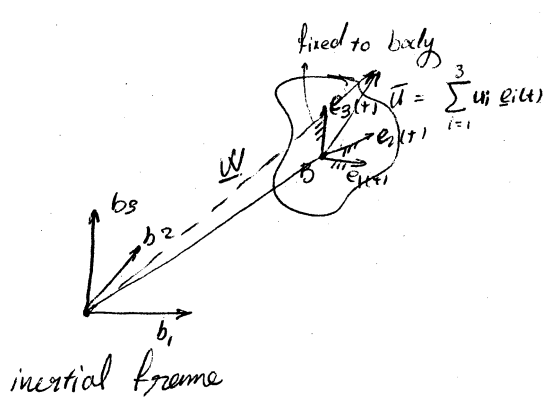 fixed to body
e₃(t)
ū = ∑_{i=1}^{3} uᵢ eᵢ(t)
e₂(t)
e₁(t)
b₃
b₂
b₁
inertial frame